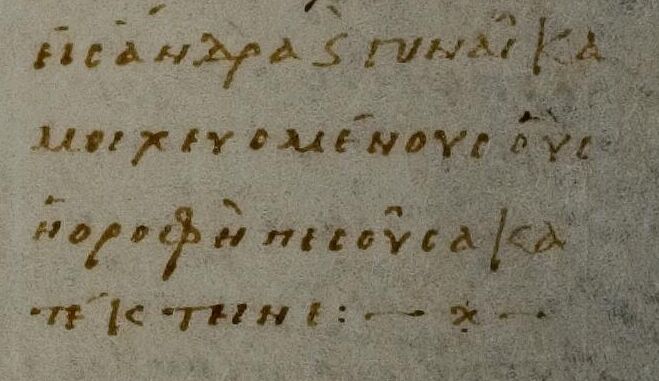 εἰς ἄνδρα ϛ γυναῖκα
μοιχευομένους οὓς
ἡ οροφὴ πεσοῦσα κα
τέκτεινε: — x —